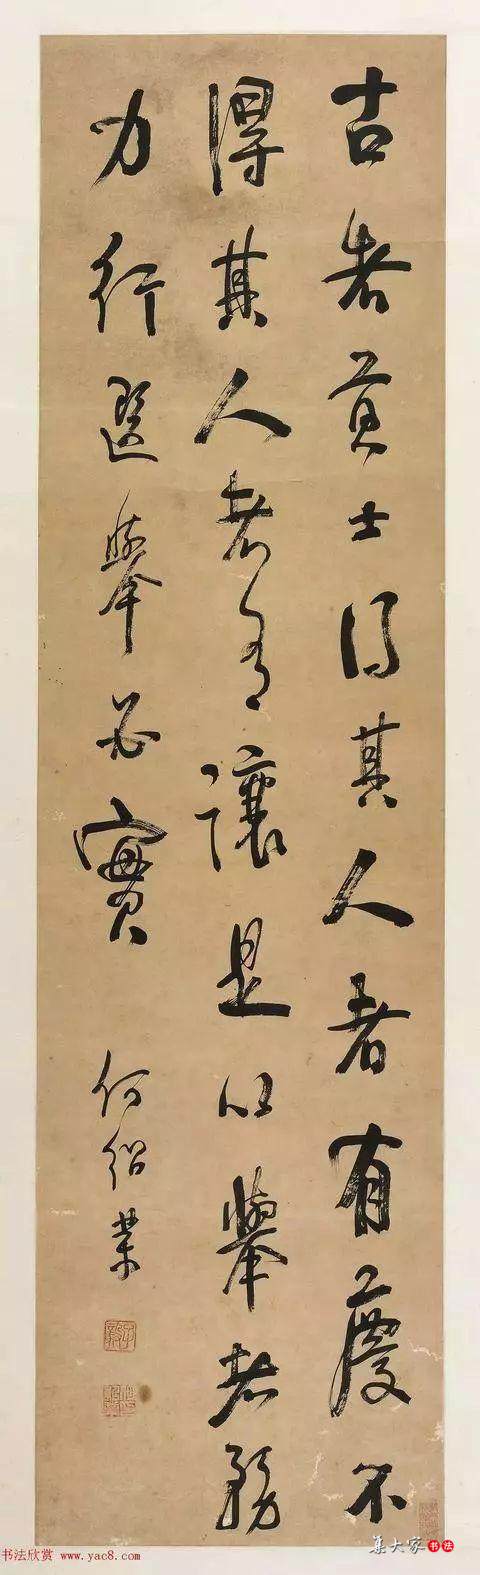 古者貢士得其人者有慶不
得其人者有讓是以舉者務
力行選舉必實
何紹業
書法欣赏 www.yac8.com
集大家书法